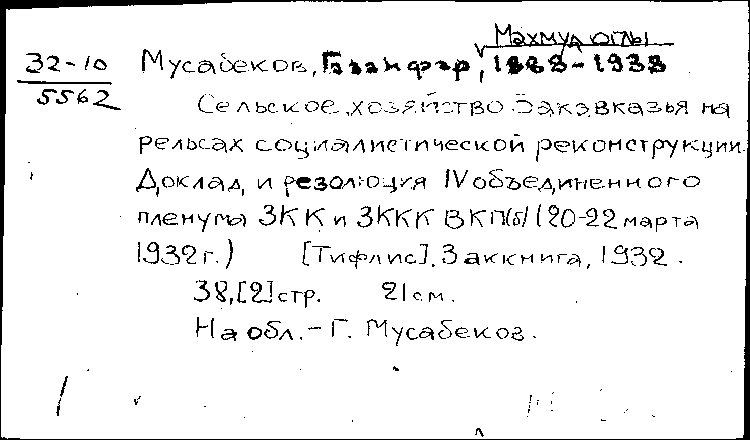 Махмуд оглы
32-10 Мусабеков, Газанфар, 1888-1938
5562
Сельское хозяйство Закавказья на
рельсах социалистической реконструкции.
Доклад и резолюция IV объединенного
пленума ЗКК и ЗККК ВКП(б) (20-22 марта
1932 г.) [Тифлис], Заккнига, 1932.
38,[2] стр. 21 см.
На обл. - Г. Мусабеков.